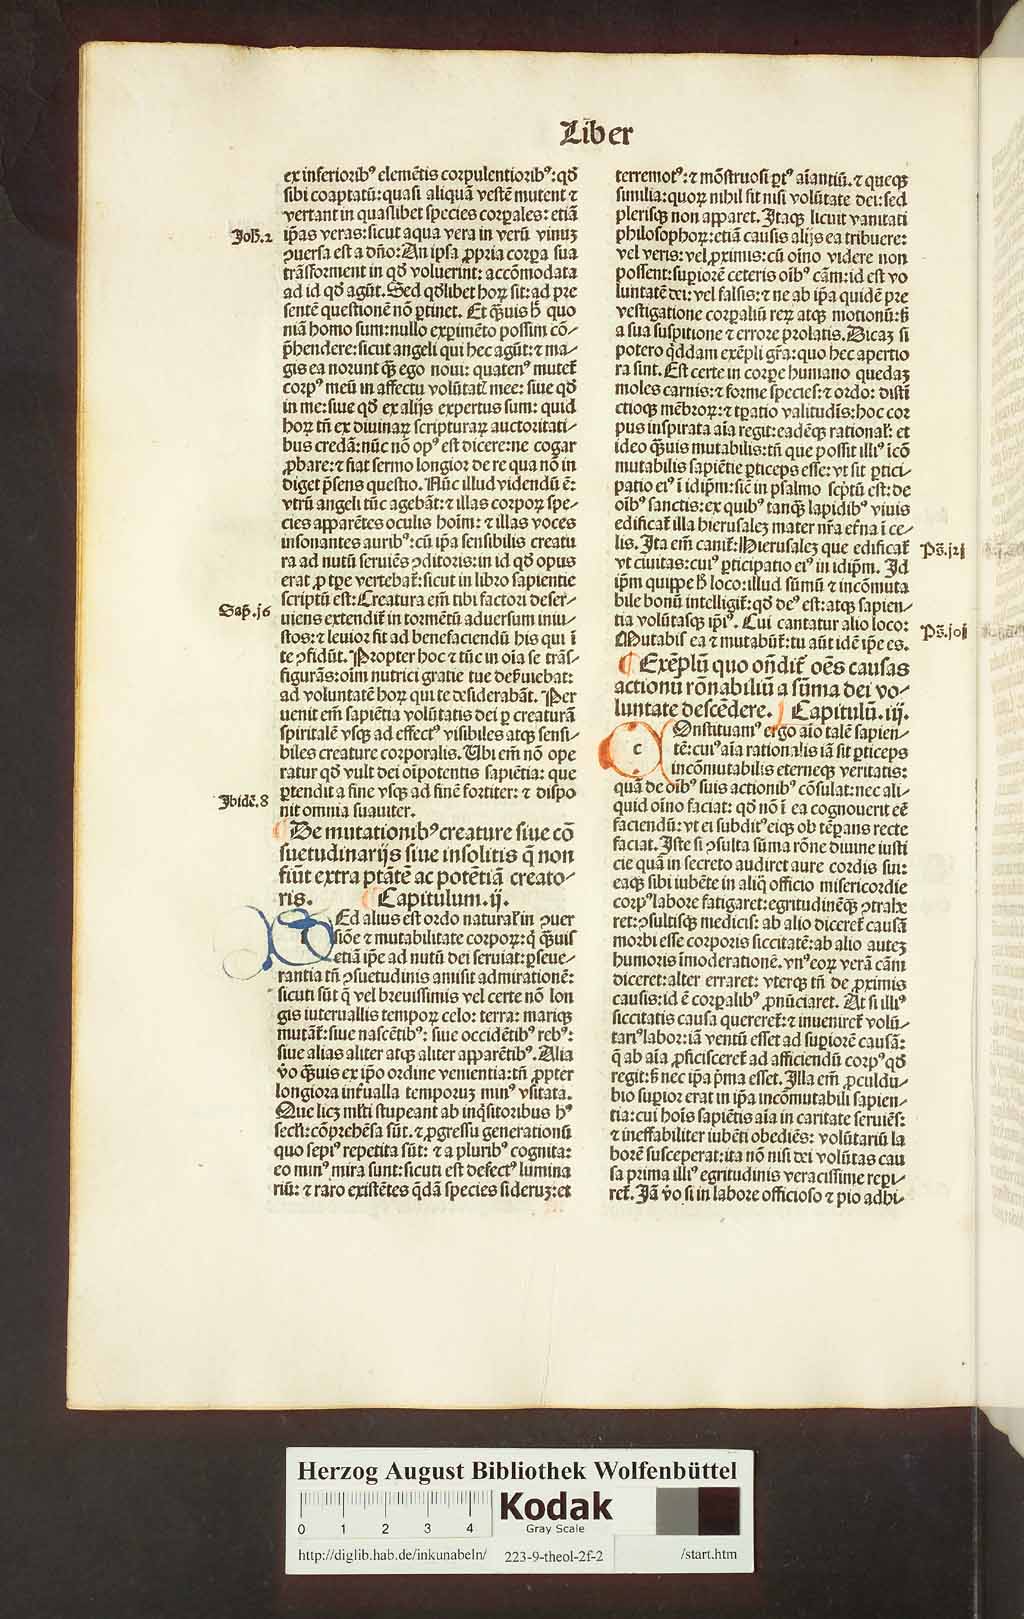 Liber
ex inferiorib⁹ elemētis corpulentiorib⁹: qđ
sibi coaptatū: quasi aliquā vestē mutent ⁊
vertant in quaslibet species corꝑales: etiā
Joh̄.2
ip̄as veras: sicut aqua vera in verū vinuꝫ
ꝯuersa est a dn̄o: An ipsa ꝓpria corꝑa sua
trāsforment in qđ voluerint: accōmodata
ad id qđ agūt. Sed qđlibet hoꝝ sit: ad pre
sentē questionē nō ꝑtinet. Et q̄ꝫuis h̄ quo
niā homo sum: nullo exꝑimēto possim cō⸗
p̄hendere: sicut angeli qui hec agūt: ⁊ ma⸗
gis ea norunt q̄ꝫ ego noui: quaten⁹ mutet᷑
corp⁹ meū in affectu volūtat᷑ mee: siue qđ
in me: siue qđ ex alijs expertus sum: quid
hoꝝ tn̄ ex diuinaꝝ scripturaꝝ auctoritati⸗
bus credā: nūc nō op⁹ est dicere: ne cogar
ꝓbare: ⁊ fiat sermo longior de re qua nō in
diget p̄sens questio. Nūc illud videndū ē:
vtrū angeli tūc agebāt: ⁊ illas corpoꝝ spe⸗
cies apparētes oculis hoīm: ⁊ illas voces
insonantes aurib⁹: cū ip̄a sensibilis creatu
ra ad nutū seruiēs ꝯditoris: in id qđ opus
erat ꝓ tꝑe vertebat᷑: sicut in libro sapientie
Sap̄.j6
scriptū est: Creatura em̄ tibi factori deser⸗
uiens extendit᷑ in tormētū aduersum iniu⸗
stos: ⁊ leuior fit ad benefaciendū his qui ī
te ꝯfidūt. Propter hoc ⁊ tūc in oīa se trās⸗
figurās: oīm nutrici gratie tue des̄uiebat:
ad voluntatē hoꝝ qui te desiderabāt. Per
uenit em̄ sapiētia volūtatis dei ꝑ creaturā
spiritalē vsqꝫ ad effect⁹ visibiles atqꝫ sensi⸗
biles creature corporalis. Ubi em̄ nō ope
ratur qđ vult dei oīpotentis sapiētia: que
Jbidē.8
ꝑtendit a fine vsqꝫ ad finē fortiter: ⁊ dispo
nit omnia suauiter.
¶ De mutationib⁹ creature siue cō
suetudinarijs siue insolitis q̄ non
fiūt extra ptātē ac potētiā creato⸗
ris. ¶ Capitulum .ij.
SEd alius est ordo natural᷑ in ꝯuer
siōe ⁊ mutabilitate corpoꝝ: q̇ q̄ꝫuis
etiā ip̄e ad nutū dei seruiat: ꝑseue⸗
rantia tn̄ ꝯsuetudinis amisit admirationē:
sicuti sūt q̄ vel breuissimis vel certe nō lon
gis interuallis tempoꝝ celo: terra: mariqꝫ
mutāt᷑: siue nascētib⁹: siue occidētib⁹ reb⁹:
siue alias aliter atqꝫ aliter apparētib⁹. Alia
v̇o q̄ꝫuis ex ip̄o ordine venientia: tn̄ ꝓpter
longiora int᷑ualla temporuꝫ min⁹ vsitata.
Que licꝫ ml̄ti stupeant ab inq̇sitoribus h⁹
secl̄i: cōprehēsa sūt. ⁊ ꝓgressu generationū
quo sepi⁹ repetita sūt: ⁊ a plurib⁹ cognita:
eo min⁹ mira sunt: sicuti est defect⁹ lumina
riū: ⁊ raro existētes q̄dā species sideruꝫ: et
terremot⁹: ⁊ mōstruosi ꝑt⁹ aīantiū. ⁊ queqꝫ
similia: quoꝝ nihil fit nisi volūtate dei: sed
plerisqꝫ non apparet. Itaqꝫ licuit vanitati
philosophoꝝ: etiā causis alijs ea tribuere:
vel veris: vel ꝓximis: cū oīno videre non
possent: suꝑiorē ceteris oīb⁹ cām: id est vo
luntatē dei: vel falsis: ⁊ ne ab ip̄a quidē pre
vestigatione corꝑaliū reꝝ atqꝫ motionū: s̄ꝫ
a sua suspitione ⁊ errore prolatis. Dicaꝫ si
potero q̇ddam exēpli gr̄a: quo hec apertio
ra sint. Est certe in corꝑe humano quedaꝫ
moles carnis: ⁊ forme species: ⁊ ordo: disti
ctioqꝫ mēbroꝝ: ⁊ tꝑatio valitudīs: hoc cor
pus inspirata aīa regit: eadēqꝫ rational᷑: et
ideo q̄ꝫuis mutabilis: tn̄ que possit illi⁹ īcō
mutabilis sapiētie ꝑticeps esse: vt sit ꝑtici⸗
patio ei⁹ ī idip̄m: sic̄ in psalmo scp̄tū est: de
oīb⁹ sanctis: ex quib⁹ tanqꝫ lapidib⁹ viuis
edificat᷑ illa hierusaleꝫ mater nr̄a et᷑na ī ce⸗
Pš.j2j
lis. Ita em̄ canit᷑: Hierusaleꝫ que edificat᷑
vt ciuitas: cui⁹ ꝑticipatio ei⁹ in idip̄m. Id
ip̄m quippe h̄ loco: illud sūmū ⁊ incōmuta
bile bonū intelligit᷑: qđ de⁹ est: atqꝫ sapien⸗
tia volūtasqꝫ ip̄i⁹. Cui cantatur alio loco:
Pš.joj
Mutabis ea ⁊ mutabūt᷑: tu aūt idē ip̄e es.
¶ Exēplū quo on̄dit᷑ oēs causas
actionū rōnabiliū a sūma dei vo⸗
luntate descēdere. ¶ Capitulū .iij.
COnstituam⁹ ergo aīo talē sapien⸗
tē: cui⁹ aīa rationalis iā sit ꝑticeps
incōmutabilis eterneqꝫ veritatis:
quā de oīb⁹ suis actionib⁹ cōsulat: nec ali⸗
quid oīno faciat: qđ nō ī ea cognouerit eē
faciendū: vt ei subdit⁹ eiqꝫ ob tēꝑans recte
faciat. Iste si ꝯsulta sūma rōne diuine iusti
cie quā in secreto audiret aure cordis sui:
eaqꝫ sibi iubēte in aliq̇ officio misericordie
corp⁹ labore fatigaret: egritudinēqꝫ ꝯtrahe
ret: ꝯsultisqꝫ medicis: ab alio diceret᷑ causā
morbi esse corporis siccitatē: ab alio auteꝫ
humoris īmoderationē. vn⁹ eoꝝ verā cām
diceret: alter erraret: vterqꝫ tn̄ de ꝓximis
causis: id ē corꝑalib⁹ ꝓnūciaret. At si illi⁹
siccitatis causa quereret᷑: ⁊ inueniret᷑ volū⸗
tari⁹ labor: iā ventū esset ad suꝑiorē causā:
q̄ ab aīa ꝓficisceret᷑ ad afficiendū corp⁹ qđ
regit: s̄ꝫ nec ip̄a p̄ma esset. Illa em̄ ꝓculdu⸗
bio suꝑior erat in ip̄a incōmutabili sapien⸗
tia: cui hoīs sapiētis aīa in caritate seruiēs:
⁊ ineffabiliter iubēti obediēs: volūtariū la
borē susceperat: ita nō nisi dei volūtas cau
sa prima illi⁹ egritudinis veracissime reꝑi⸗
ret᷑. Iā v̇o si in labore officioso ⁊ pio adhi⸗
Herzog August Bibliothek Wolfenbüttel
0 1 2 3 4
Kodak
Gray Scale
http://diglib.hab.de/inkunabeln/ 223-9-theol-2f-2 /start.htm